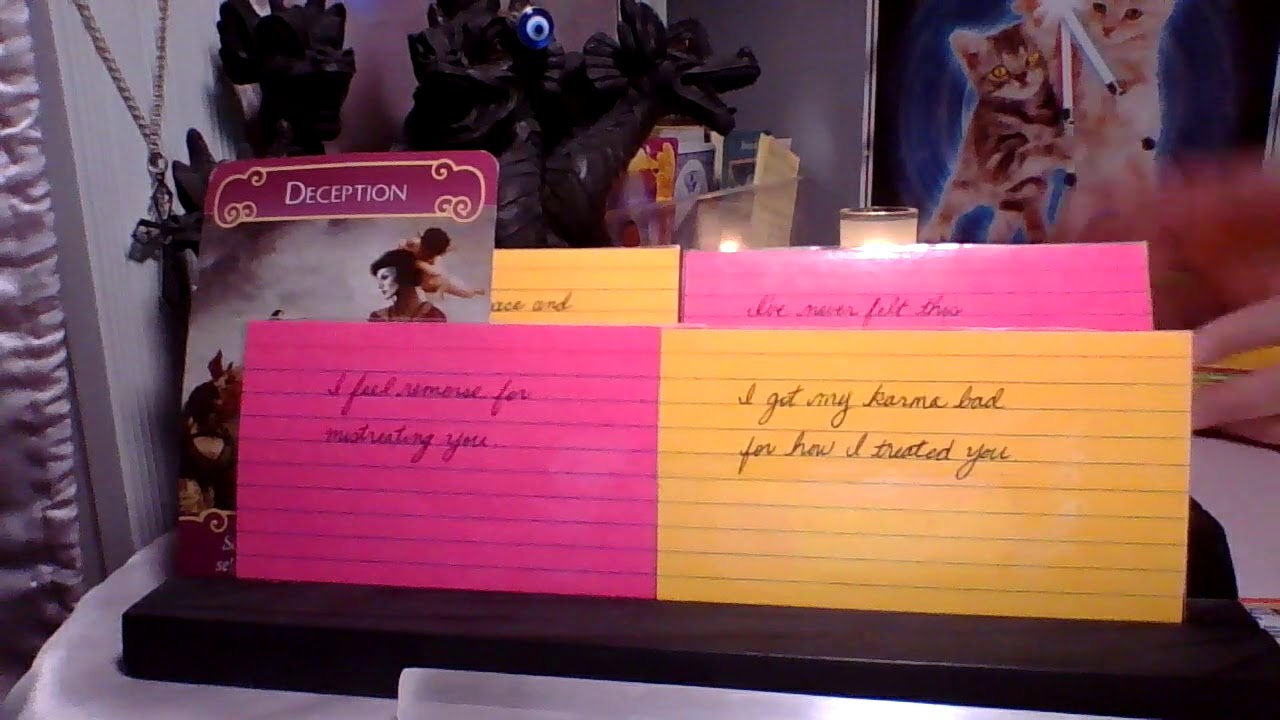 DECEPTION
and
I've never felt this
I feel remorse for
mistreating you.
I got my karma bad
for how I treated you.